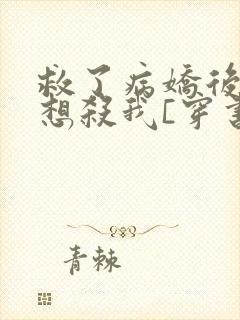 救了病嬌後
想殺我[穿書
青棘